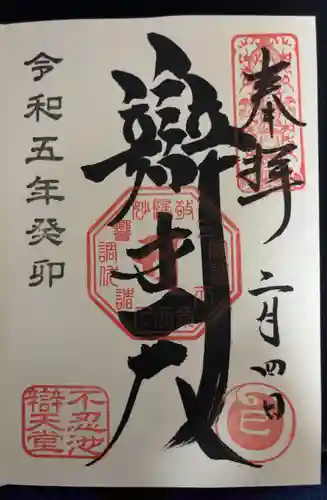 奉拝
二月四日
辯才天
令和五年癸卯
不忍池
辯天堂